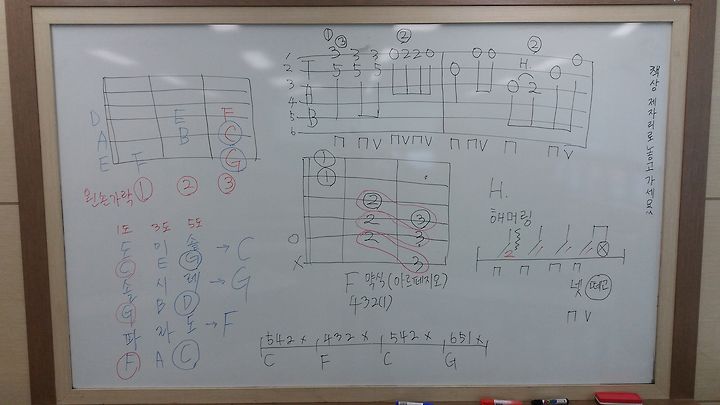 ① ③ ② ②
1 3 3 3 0 2 2 0 0 0 H. 0 0
2 T 5 5 5 0 0
3 A 0 2
4
5 B
6
⊓ ⊓ V ⊓V ⊓V ⊓ ⊓ V ⊓ ⊓ V
책상 제자리로 놓고 가세요!
D E F
A B C
E F G
왼손가락 ① ② ③
1도 3도 5도
도 미 솔 → C
C E G
솔 시 레 → G
G B D
파 라 도 → F
F A C
①
①
②
2 ③
0 2 3
X 3
F 약식 (아르페지오)
432(1)
H.
해머링
2
⊓ ⊓ ⊓ ⊓
넷 떼고
⊓ V
542x 432x 542x 651x
C F C G